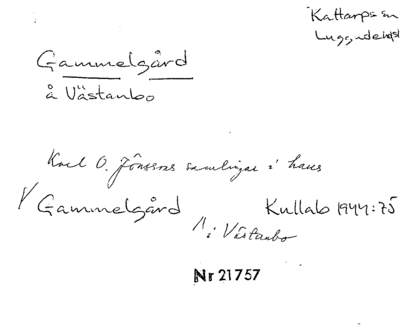 Kattarps sn
Luggudehrd
Gammelgård
å Västanbo
Karl O. Jönssons samlingar i hans
Gammelgård
Kullab 1944:75
i Västanbo
Nr 21757